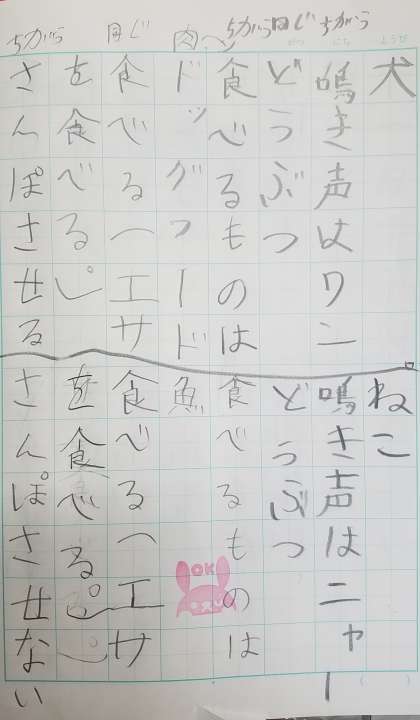 ちがう
同じ
ちがう
肉
同じ
ちがう
犬
鳴き声はワン
どうぶつ
食べるものは
ドッグフード
食べる(エサ
を食べる。)
さんぽさせる
ねこ
鳴き声はニャー
どうぶつ
食べるものは
魚
食べる(エサ
を食べる。)
さんぽさせない
OK